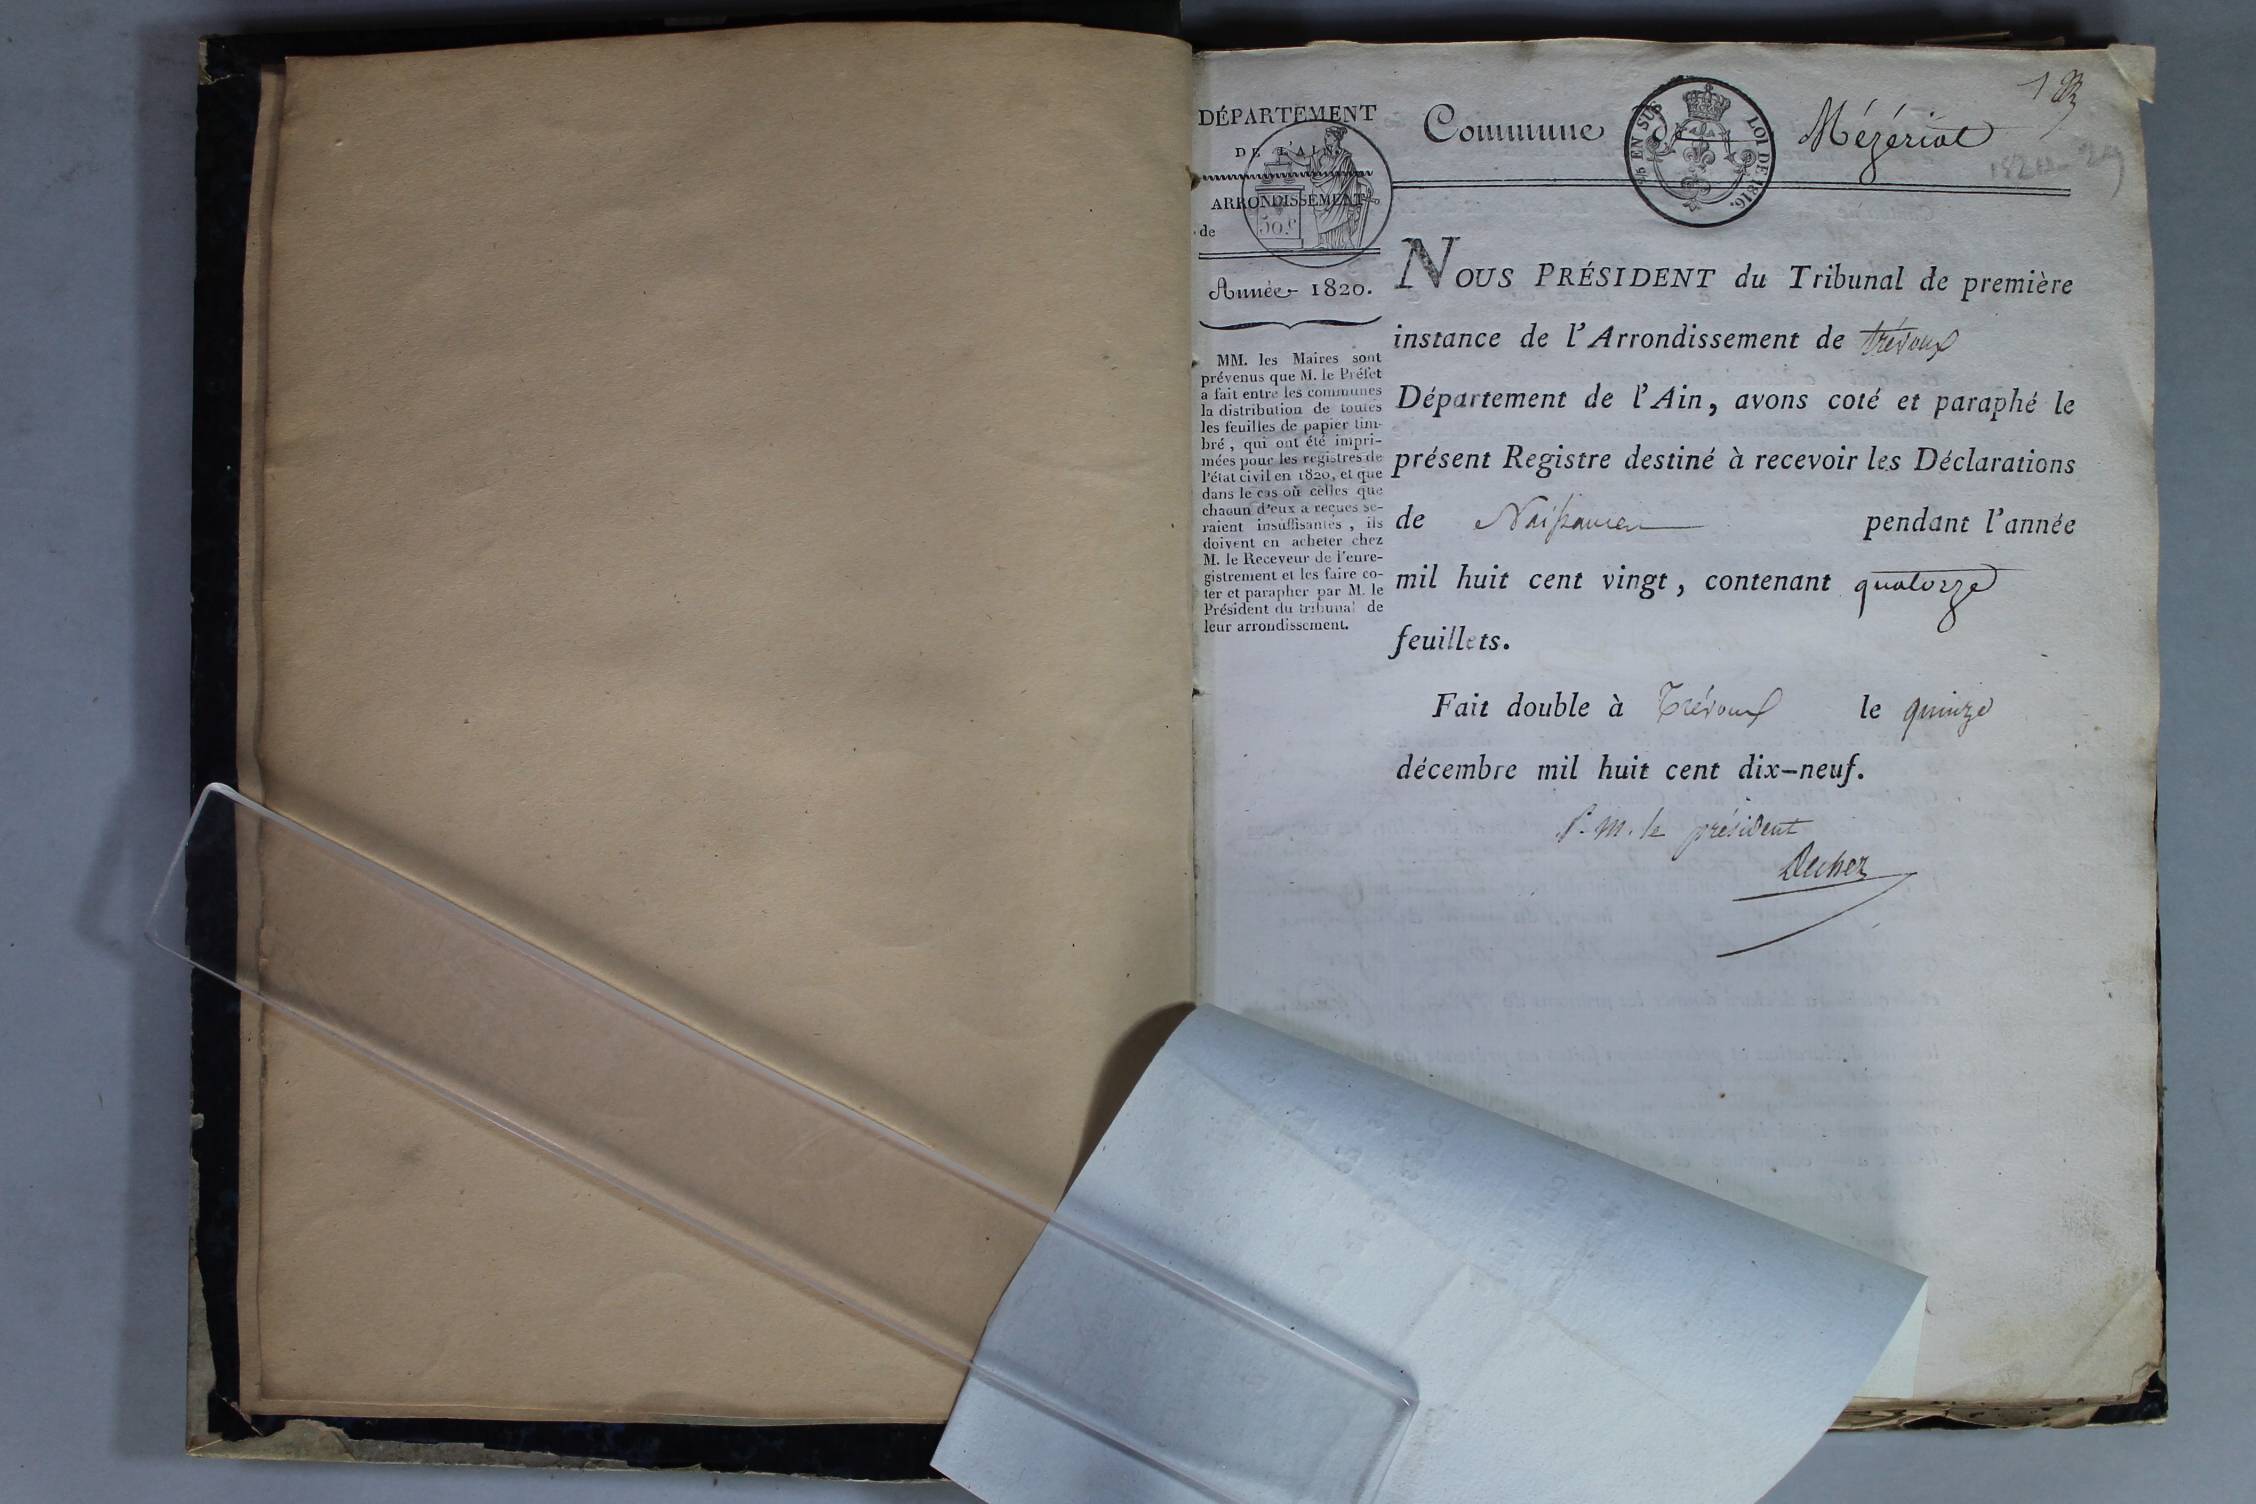 DÉPARTEMENT
DE L'AIN.
ARRONDISSEMENT
de
50.c
Année 1820.
MM. les Maires sont
prévenus que M. le Préfet
a fait entre les communes
la distribution de toutes
les feuilles de papier tim-
bré, qui ont été impri-
mées pour les registres de
l'état civil en 1820, et que
dans le cas où celles que
chacun d'eux a reçues se-
raient insuffisantes, ils
doivent en acheter chez
M. le Receveur de l'enre-
gistrement et les faire co-
ter et parapher par M. le
Président du tribunal de
leur arrondissement.
1
Commune de Mézériat
EN SUS LOI DE 1816.
NOUS PRÉSIDENT du Tribunal de première
instance de l'Arrondissement de trévoux
Département de l'Ain, avons coté et paraphé le
présent Registre destiné à recevoir les Déclarations
de Naissances pendant l'année
mil huit cent vingt, contenant quatorze
feuillets.
Fait double à Trévoux le quinze
décembre mil huit cent dix-neuf.
P. M. le président